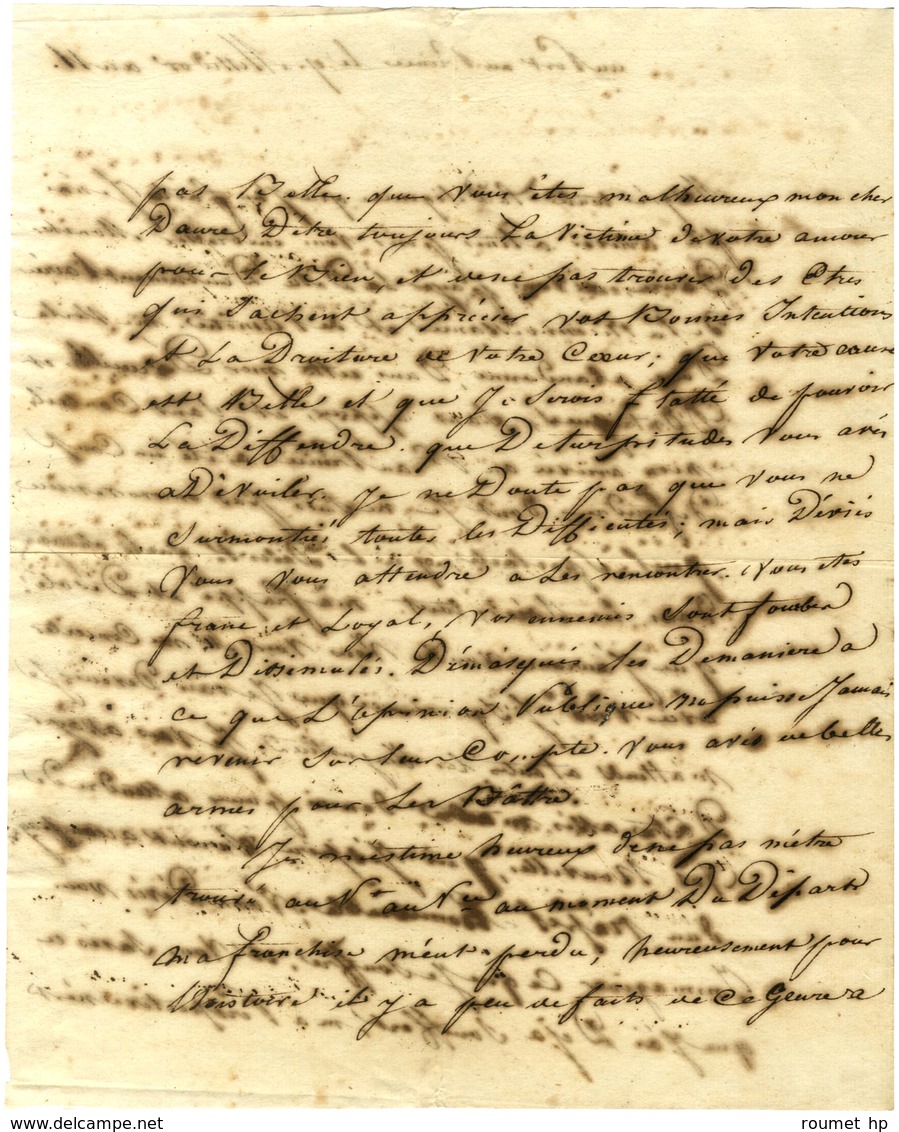 pas Belle. que vous êtes malheureux mon cher
Daure, D'être toujours La Victime de votre amour
pour le Bien, et de ne pas trouver des Etres
qui Sachent apprécier vos Bonnes Intentions
et La Droiture de Votre Coeur; que votre cause
est Belle et que Je Serois flatté de pouvoir
La Deffendre. que De turpitudes Vous avés
a Dévoiler. Je ne Doute pas que vous ne
Surmontiés toutes les Difficultés; mais Deviés
Vous vous attendre a Les rencontrer. Vous etes
franc et Loyal, vos ennemis Sont fourbes
et Dissimulés. Démasqués les De maniere a
ce que L'opinion Publique ne puisse Jamais
revenir Sur leur Compte. Vous avés de belles
armes pour Les Battre.
Je m'éstime heureux de ne pas m'être
trouvé au au moment Du Départ
ma franchise m'eut perdu, heureusement pour
l'histoire il y a peu de faits de Ce Genre a
roumet hp